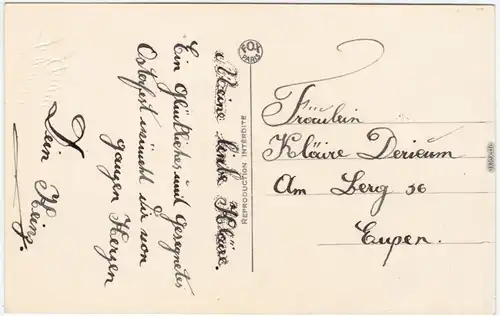 Meine liebe Kläire.
Ein Glückliches und Gesegnetes
Osterfest wünscht dir von
ganzen Herzen
Dein Heinz.
FOX
PARIS
REPRODUCTION INTERDITE
Fräulein
Kläire Derieum
Am Berg 36
Eupen.